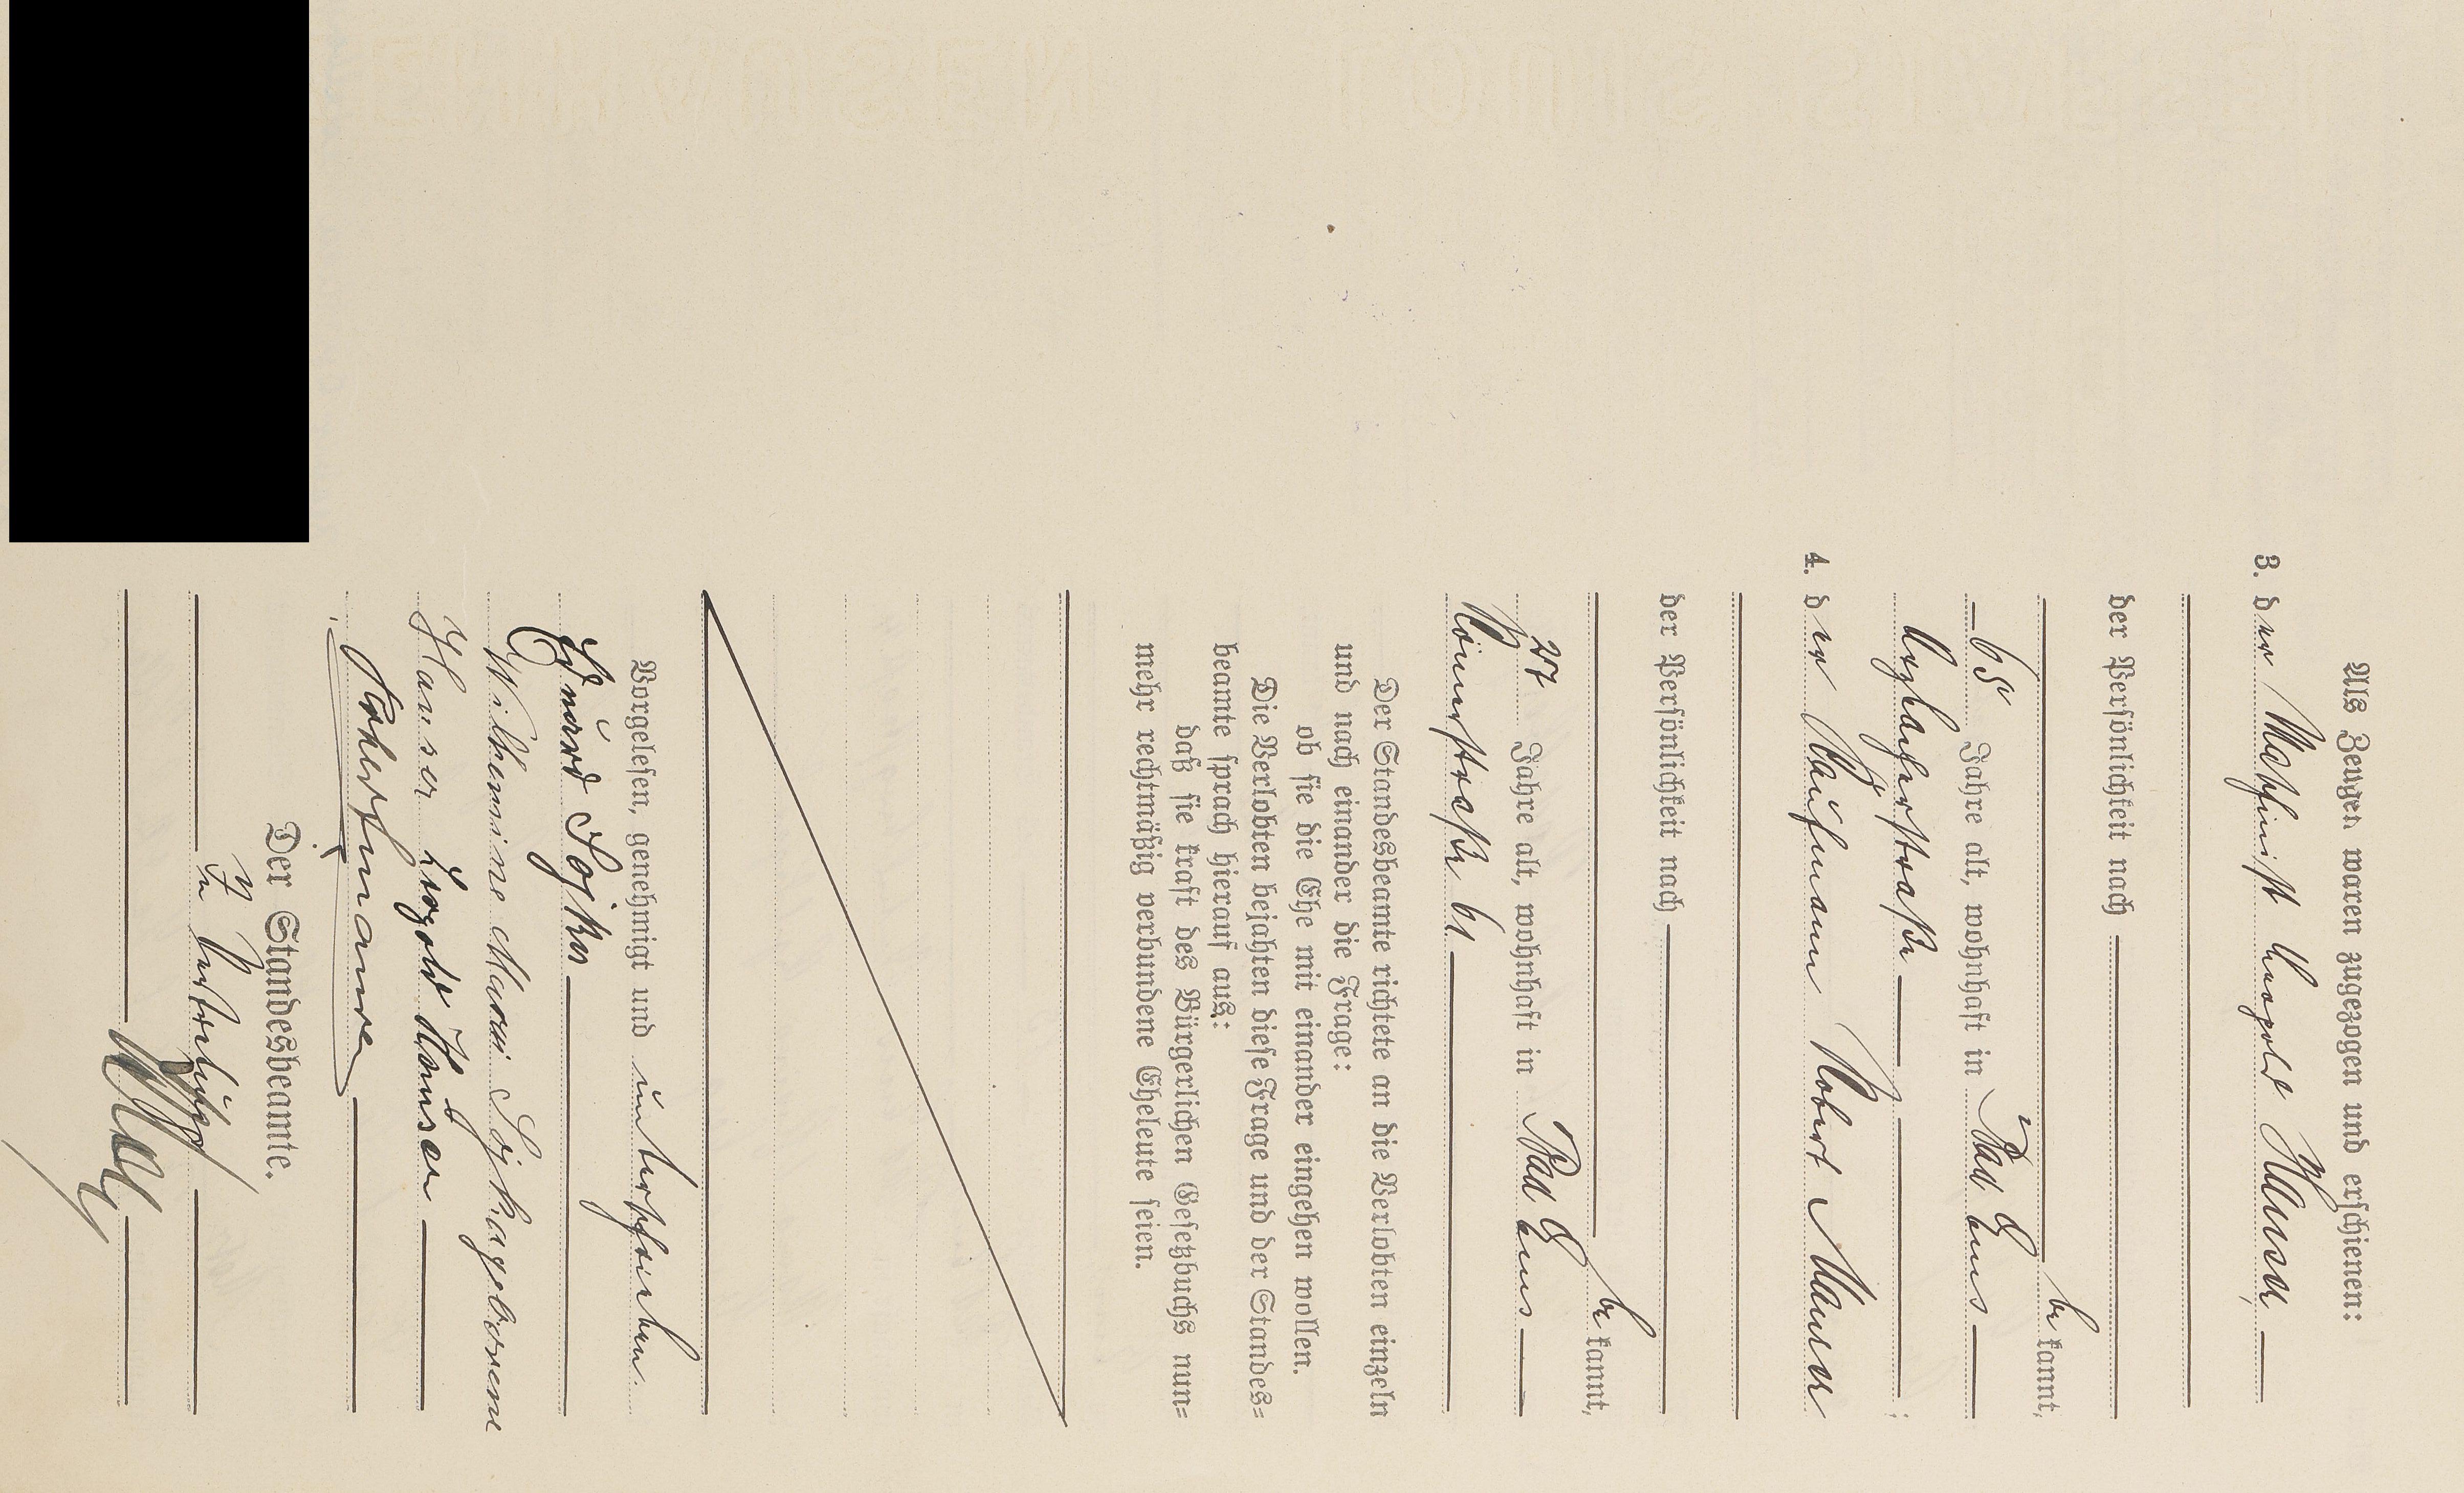 Als Zeugen waren zugezogen und erschienen:
3. der Maschinist Leopold
der Persönlichkeit nach
bekannt,
65 Jahre alt, wohnhaft in Bad Ems
4. der Kaufmann Robert
der Persönlichkeit nach
bekannt,
27 Jahre alt, wohnhaft in Bad Ems
Römerstraße 61
Der Standesbeamte richtete an die Verlobten einzeln
und nach einander die Frage:
ob sie die Ehe mit einander eingehen wollen.
Die Verlobten bejahten diese Frage und der Standes=
beamte sprach hierauf aus:
daß sie kraft des Bürgerlichen Gesetzbuchs nun=
mehr rechtmäßig verbundene Eheleute seien.
Vorgelesen, genehmigt und unterschrieben
Eduard Sojka
Wilhelmine Sojka geborene
Der Standesbeamte.
In Vertretung